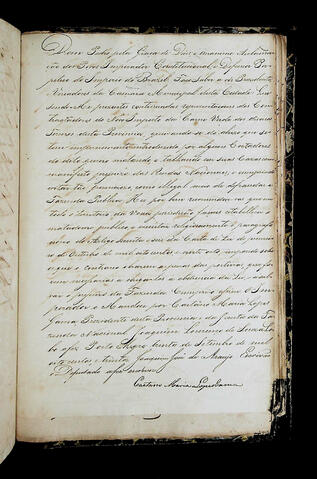 Dom Pedro pela Graça de Deos e unanime Aclama-
ção dos Povos Imperador Constitucional e Defensor Per-
petuo do Imperio do Brazil. Faço saber a vós Presidente
e Vereadores da Camara Municipal desta Cidade
que sendo-Me presentes continuadas representaçoens dos Con-
tractadores do Novo Imposto da Carne Verde das
desta Provincia, queixando-se do abuso que se
tem introduzido por alguns Cortadores
do dito genero matando e talhando em suas Cazas com
manifesto prejuizo das Rendas Nacionaes, e
como illegal meio de defraudar a
Fazenda Publica. Hei por bem recommendar-vos que em
todo o territorio da Vossa jurisdicção façaes estabellecer
matadouro publico, e executar religiosamente o paragrafo
nono do Artigo sessenta e seis da Carta de Lei do primeiro
de Outubro de mil oito centos e vinte oito, impondo aos
que o contrario obrarem
a obediencia da Lei, e
o prejuizo da Fazenda. Cumprio assim. O Im-
perador o Mandou por Caetano Maria Lopes
Gama Presidente desta Provincia e da Junta da Fa-
zenda Nacional. Joaquim
a fez. Porto Alegre trinta de Setembro de mil
oito centos e trinta. Joaquim José de Araujo Escrivão
e Deputado a fez escrever.
Caetano Maria Lopes Gama